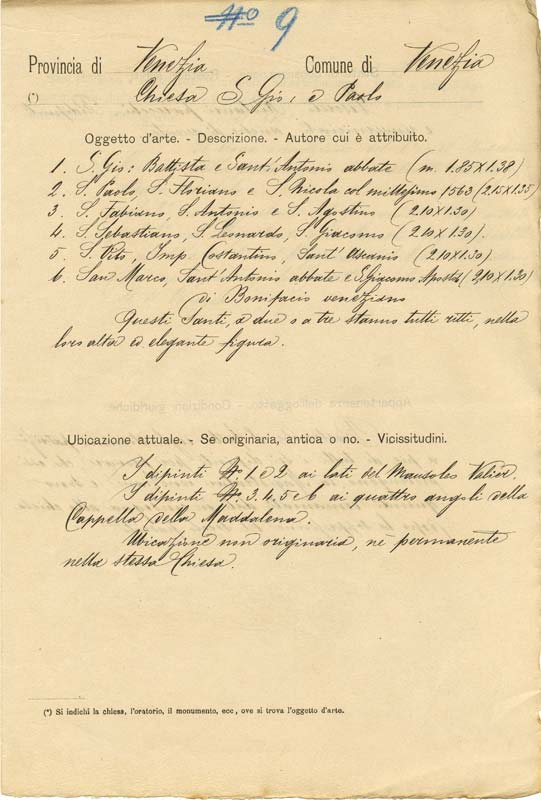 No 9
Provincia di Venezia Comune di Venezia
(*) Chiesa S. Gio: e Paolo
Oggetto d'arte. - Descrizione. - Autore cui è attribuito.
1. S. Gio: Battista e Sant'Antonio abbate (m. 1.85 X 1.38)
2. S. Paolo, S. Floriano e S. Nicola col millesimo 1563 (2.15 X 1.35)
3. S. Fabiano, S. Antonio e S. Agostino (2.10 X 1.30)
4. S. Sebastiano, S. Leonardo, S. Giacomo (2.10 X 1.30).
5. S. Vito, Imp. Costantino, Sant' Ascanio (2.10 X 1.30).
6. San Marco, Sant'Antonio abbate e S. Giacomo Apostolo (2,10 X 1.30)
di Bonifacio veneziano
Questi Santi, a due o a tre stanno tutti ritti, nella
loro alta ed elegante figura.
Appartenenza dell'oggetto. - Condizioni giuridiche
Ubicazione attuale. - Se originaria, antica o no. - Vicissitudini.
I dipinti N.i 1 e 2 ai lati del Mausoleo Valier.
I dipinti N.i 3. 4. 5 e 6 ai quattro angoli della
Cappella della Maddalena.
Ubicazione non originaria, nè permanente
nella stessa Chiesa.
(*) Si indichi la chiesa, l'oratorio, il monumento, ecc, ove si trova l'oggetto d'arte.